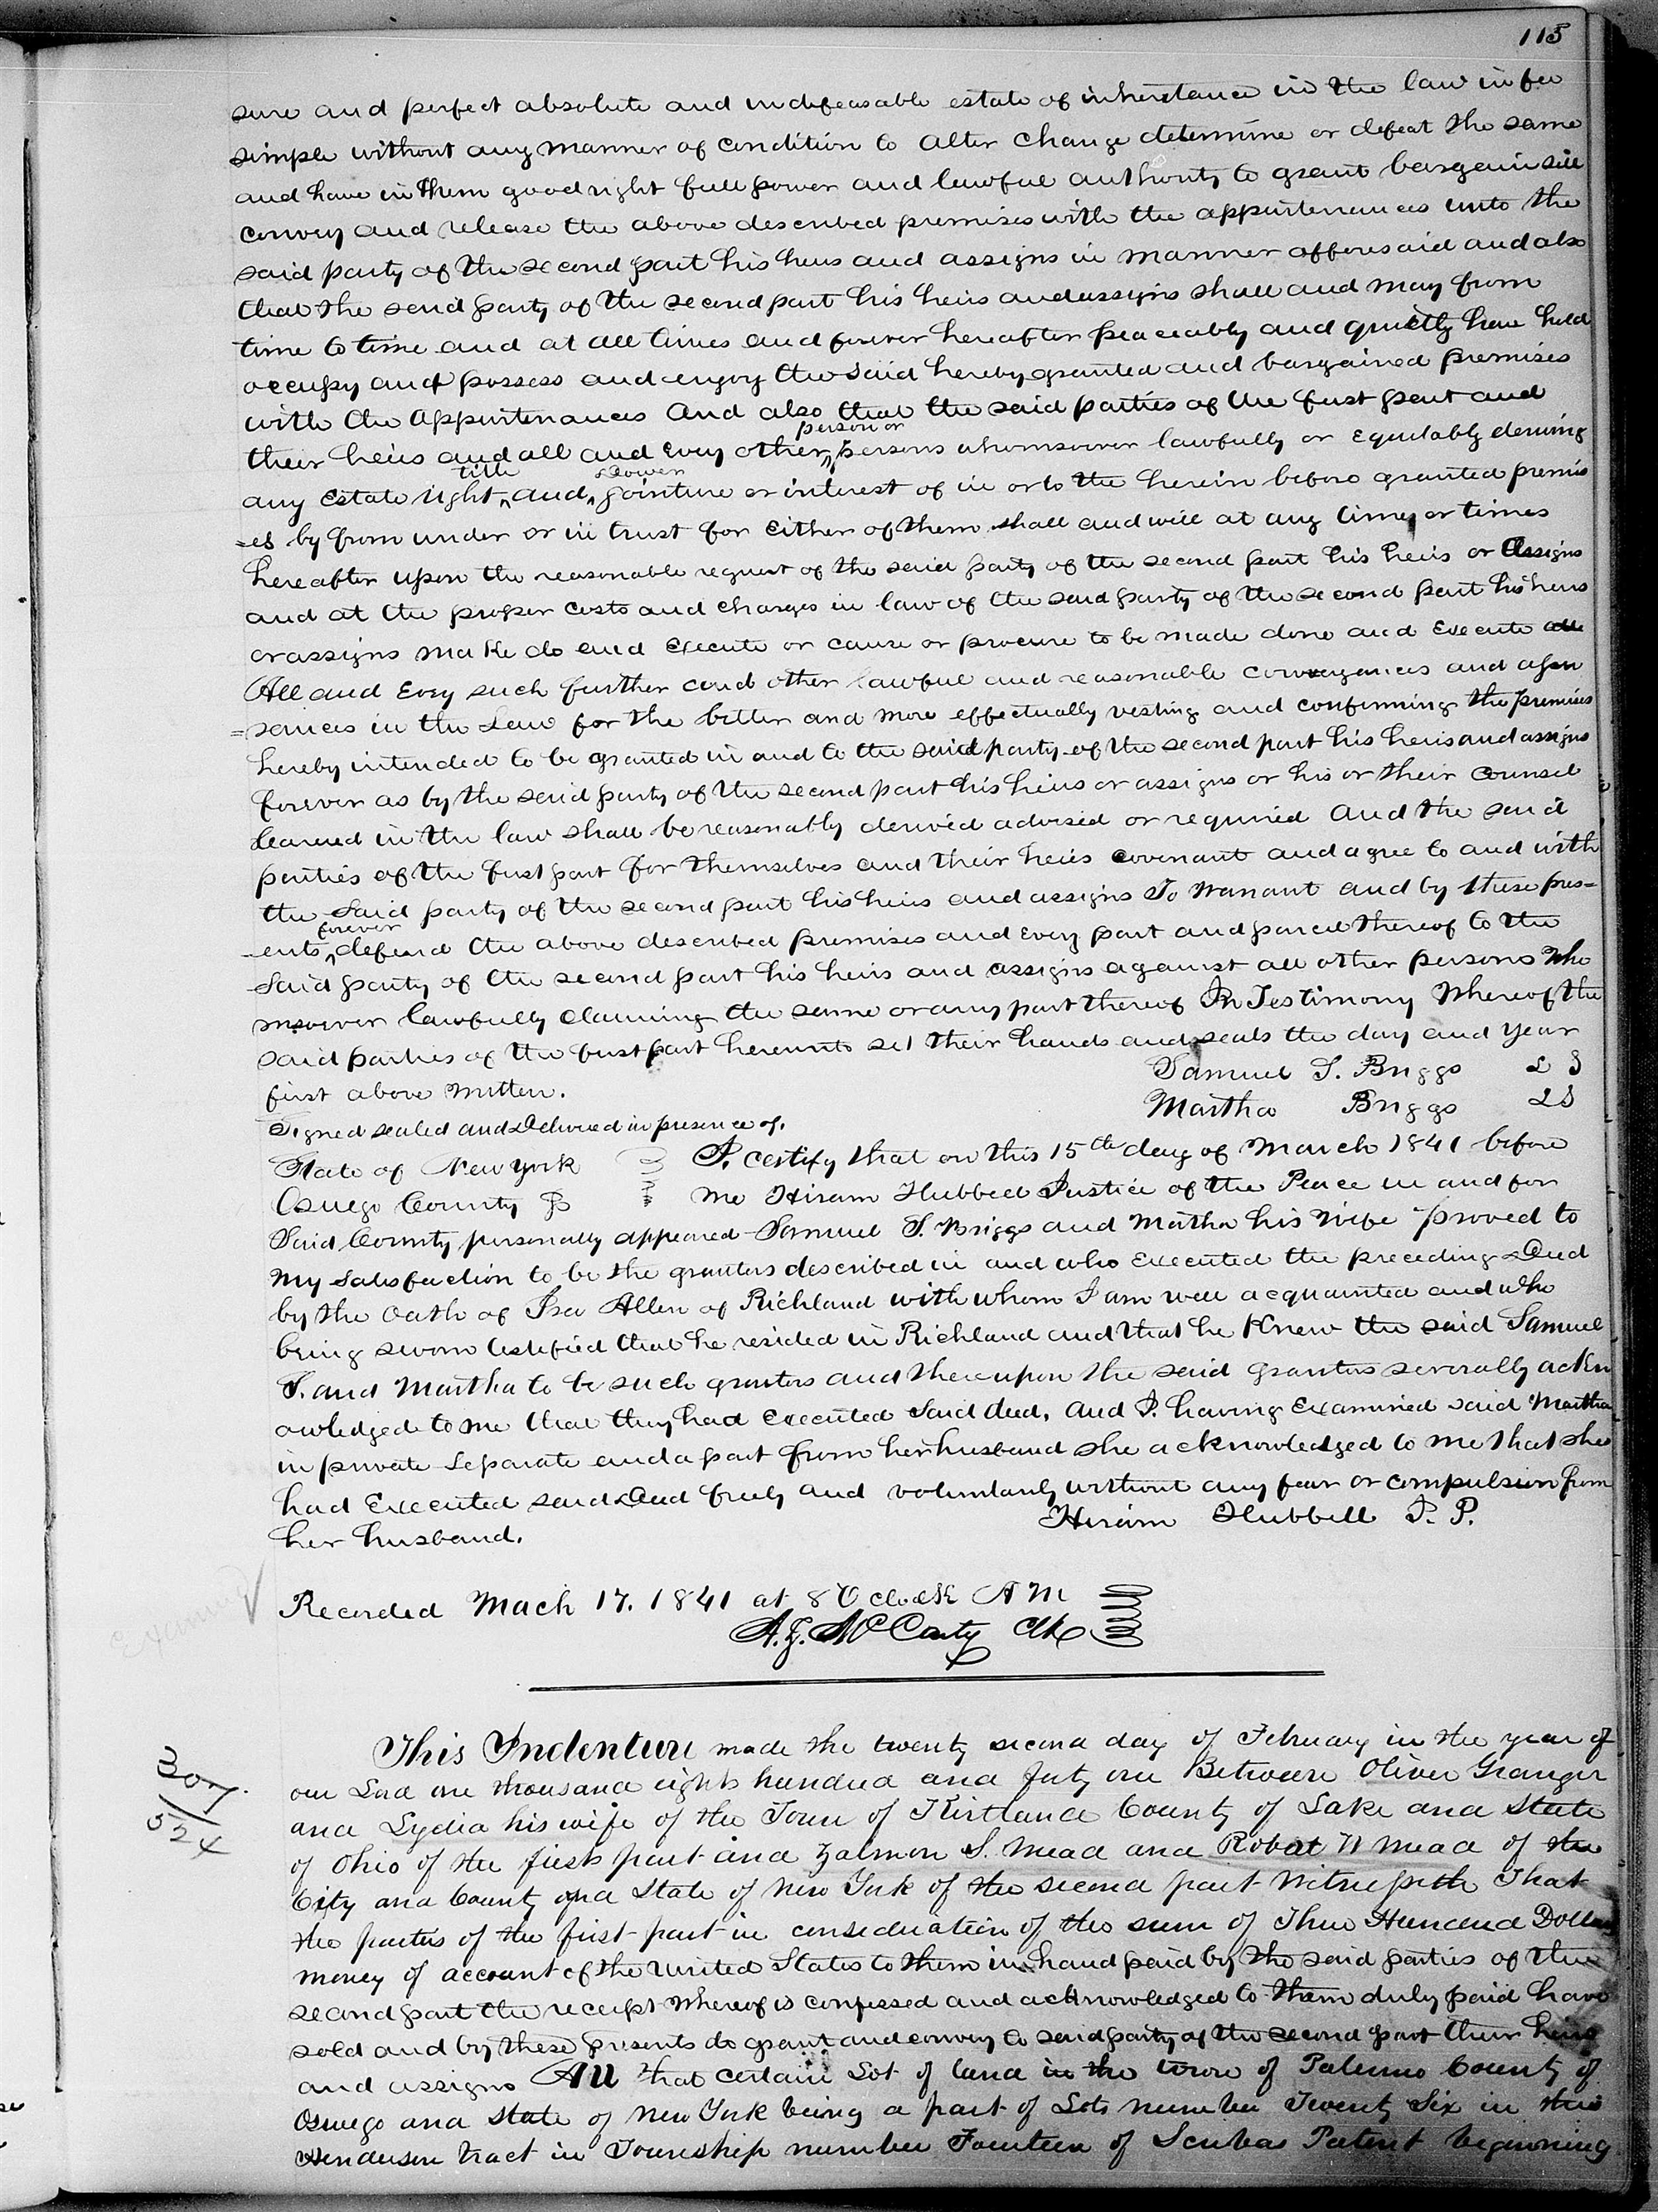 115
sure and perfect absolute and indefeasable estate of inheritance in the law in fee
simple without any manner of condition to alter change determine or defeat the same
and have in them good right full power and lawful authority to grant bargain sell
convey and release the above described premises with the appurtenances unto the
said party of the second part his heirs and assigns in manner afforesaid and also
that the said party of the second part his heirs and assigns shall and may from
time to time and at all times and forever hereafter peaceably and quietly have hold
occupy and possess and enjoy the said hereby granted and bargained premises
with the appurtenances And also that the said parties of the first part and
person or
their heirs and all and every other persons whomsoever lawfully or equitably deriving
title dower
any estate right and jointure or interest of in or to the herein before granted premis
=es by from under or in trust for either of them shall and will at any time or times
hereafter upon the reasonable request of the said party of the second part his heirs or assigns
and at the proper costs and charges in law of the said party of the second part his heirs
or assigns make do and execute or cause or procure to be made done and execute all
All and Every such further and other lawful and reasonable conveyances and assur
=sances in the Law for the better and more effectually vesting and confirming the premises
hereby intended to be granted in and to the said party of the second part his heirs and assigns
forever as by the said party of the second part his heirs or assigns or his or their counsel
learned in the law shall be reasonably devised advised or required And the said
parties of the first part for themselves and their heirs covenant and agree to and with
the said party of the second part his heirs and assigns To Warrant and by these pres=
forever
ents defend the above described premises and every part and parcel thereof to the
said party of the second part his heirs and assigns against all other persons who
msoever lawfully claiming the same or any part thereof In Testimony Whereof the
said parties of the first part hereunto set their hands and seals the day and year
first above written. Samuel S. Briggs L S
Signed sealed and Delivered in presence of. Martha Briggs L S
State of New York I certify that on this 15th day of March 1841 before
Oswego County SS me Hiram Hubbell Justice of the Peace in and for
Said County personally appeared Samuel S. Briggs and Martha his wife proved to
my satisfaction to be the grantors described in and who executed the preceding Deed
by the oath of Isa Allen of Richland with whom I am well acquainted and who
being sworn testified that he resided in Richland and that he knew the said Samuel
S. and Martha to be such grantors and thereupon the said grantors severally ackn
owledged to me that they had executed said deed. And I having examined said Martha
in private separate and apart from her husband she acknowledged to me that she
had executed said Deed freely and voluntarily without any fear or compulsion from
her husband. Hiram Hubbell J. P.
Recorded Mach 17. 1841 at 8 O clock A M
A. Z. McCarty Clk
307
524
This Indenture made the twenty second day of February in the year of
our Lord one thousand eight hundred and forty one Between Oliver Granger
and Lydia his wife of the Town of Kirtland County of Lake and State
of Ohio of the first part and Zalmon S. Mead and Robert W Mead of the
City and County and State of New York of the second part Witnesseth That
the parties of the first part in consideration of the sum of Three Hundred Dollars
money of account of the United States to them in hand paid by the said parties of the
second part the receipt whereof is confessed and acknowledged to them duly paid have
sold and by these presents do grant and convey to said party of the second part their heirs
and assigns All that certain Lot of land in the town of Palermo County of
Oswego and State of New York being a part of Lots number Twenty Six in the
Henderson tract in Township number Fourteen of Scribas Patent beginning